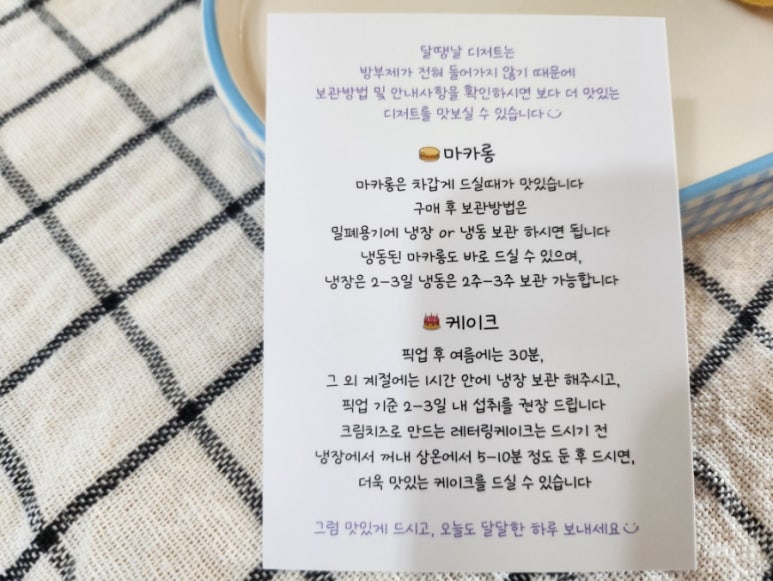 달땡날 디저트는
방부제가 전혀 들어가지 않기 때문에
보관방법 및 안내사항을 확인하시면 보다 더 맛있는
디저트를 맛보실 수 있습니다
마카롱
마카롱은 차갑게 드실때가 맛있습니다
구매 후 보관방법은
밀폐용기에 냉장 or 냉동 보관 하시면 됩니다
냉동된 마카롱도 바로 드실 수 있으며,
냉장은 2-3일 냉동은 2주-3주 보관 가능합니다
케이크
픽업 후 여름에는 30분,
그 외 계절에는 1시간 안에 냉장 보관 해주시고,
픽업 기준 2-3일 내 섭취를 권장 드립니다
크림치즈로 만드는 레터링케이크는 드시기 전
냉장에서 꺼내 상온에서 5-10분 정도 둔 후 드시면,
더욱 맛있는 케이크를 드실 수 있습니다
그럼 맛있게 드시고, 오늘도 달달한 하루 보내세요